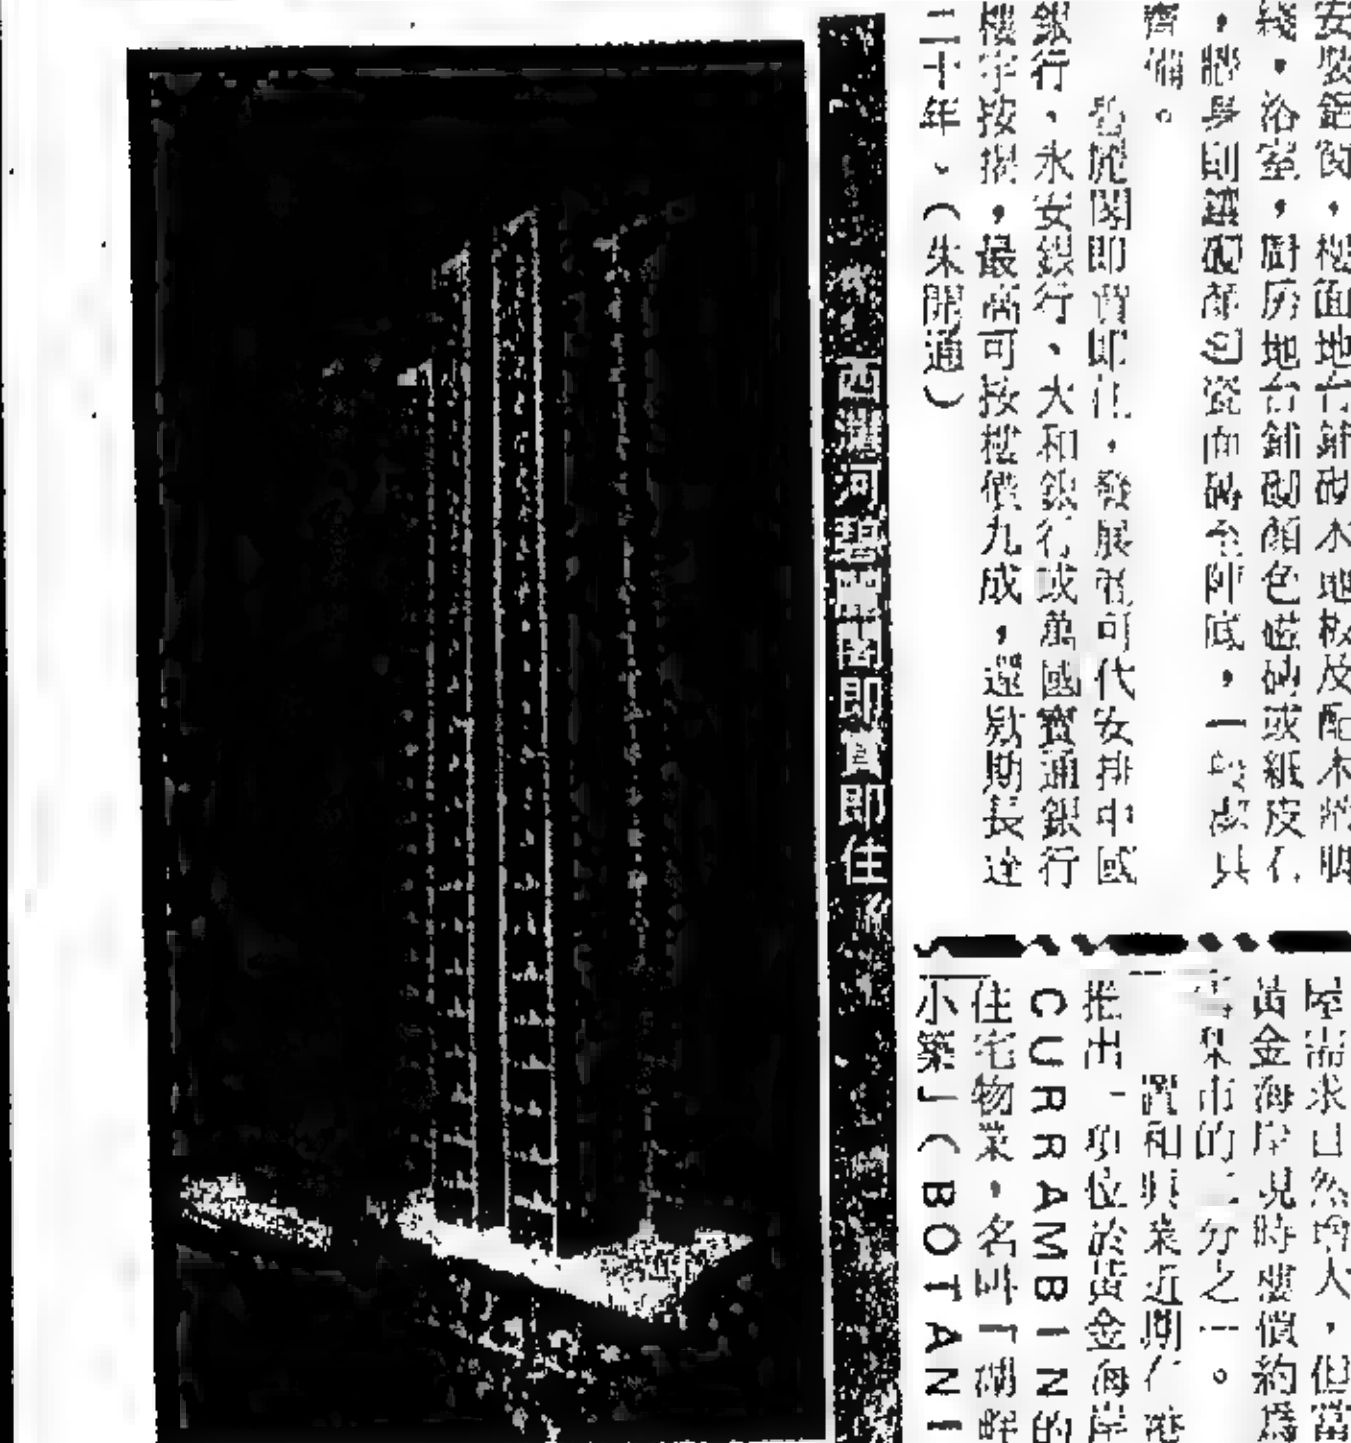 安裝鋁窗，樓面地台鋪砌木地板及配木
綫。浴室，厨房地台鋪砌顏色磁磚或紙皮石
，牆身則鑲砌顏色瓷面磚至陣底，一設具
齊備。
碧麗閣即買即住，發展商可代安排中國
銀行、永安銀行、大和銀行或萬國寶通銀行
樓宇按揭，最高可按樓價九成，還欵期長達
二十年、（朱開通）
西灣河碧麗閣即買即住
屋需求自然增大，但當
黃金海岸現時樓價約爲
市的二分之一。
置和興業近期
推出一項位於黃金海岸
CURRAMBIN的
住宅物業，名叫「湖畔
小築」（BOTANI